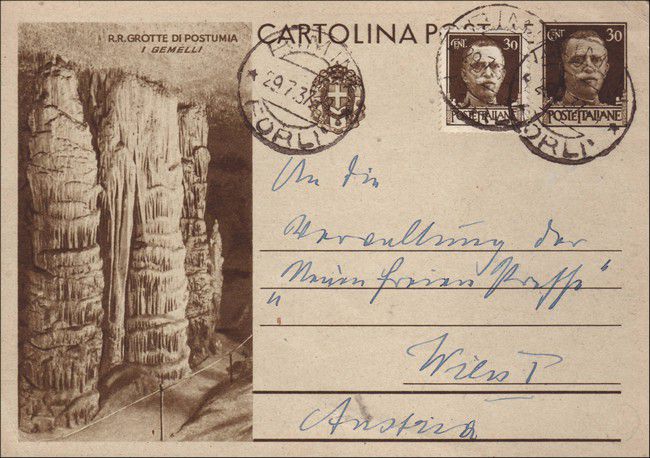 R.R. GROTTE DI POSTUMIA
I GEMELLI
CARTOLINA
CENT. 30
POSTE ITALIANE
CENT. 30
POSTE ITALIANE
29.7.37
FORLI
FORLI
An die
Verwaltung der
„Neuen freien Presse"
Wien I
Austria